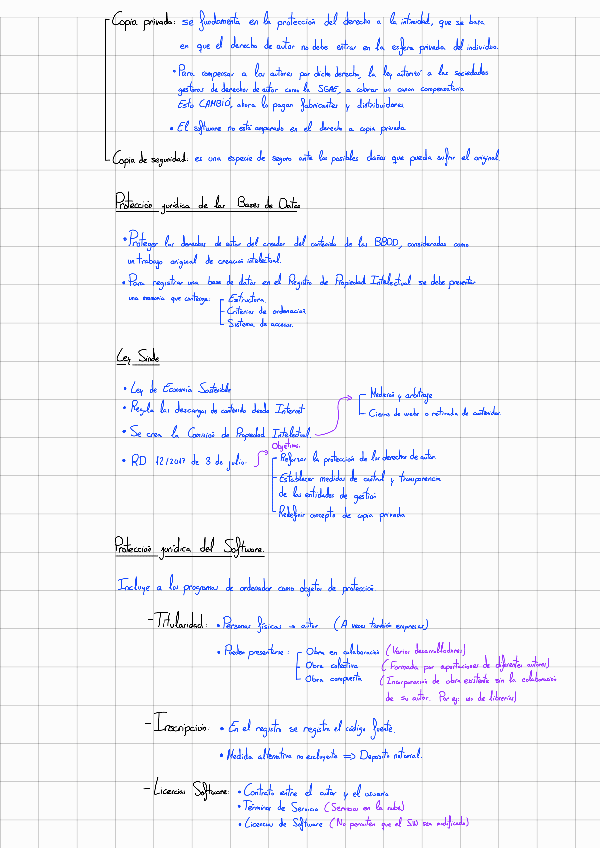 Copia privada: se fundamenta en la protección del derecho a la intimidad, que se basa
en que el derecho de autor no debe entrar en la esfera privada del individuo.
• Para compensar a los autores por dicho derecho, la ley autorizó a las sociedades
gestoras de derechos de autor como la SGAE, a cobrar un canon compensatorio
Esto CAMBIÓ, ahora lo pagan fabricantes y distribuidores
• El software no está amparado en el derecho a copia privada
Copia de seguridad: es una especie de seguro ante los posibles daños que pueda sufrir el original.
Protección jurídica de las Bases de Datos
• Proteger los derechos de autor del creador del contenido de las BBDD, consideradas como
un trabajo original de creación intelectual.
• Para registrar una base de datos en el Registro de Propiedad Intelectual se debe presentar
una memoria que contenga: Estructura.
Criterios de ordenación
Sistema de acceso.
Ley Sinde
• Ley de Economía Sostenible
• Regula las descargas de contenido desde Internet
• Se crea la Comisión de Propiedad Intelectual. → Mediación y arbitraje
Cierre de webs o retirada de contenidos
• RD 12/2017 de 3 de julio → Objetivos:
Reforzar la protección de los derechos de autor.
Establecer medidas de control y transparencia
de las entidades de gestión
Redefinir concepto de copia privada
Protección jurídica del Software.
Incluye a los programas de ordenador como objetos de protección.
- Titularidad: • Personas físicas → autor (A veces también empresas)
• Pueden presentarse: Obra en colaboración (Varios desarrolladores)
Obra colectiva (Formada por aportaciones de diferentes autores)
Obra compuesta (Incorporación de obra existente sin la colaboración
de su autor. Por ej: uso de librerías)
- Inscripción: • En el registro se registra el código fuente.
• Medida alternativa no excluyente ⇒ Deposito notarial.
- Licencias Software: • Contrato entre el autor y el usuario
• Términos de Servicio (Servicios en la nube)
• Licencias de Software (No permiten que el SW sea modificado)